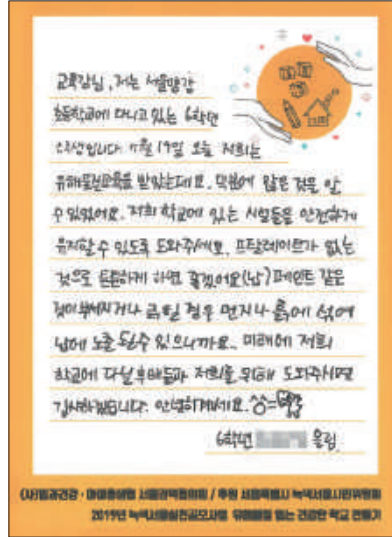 교육감님, 저는 서울명강
초등학교에 다니고 있는 6학년
학생입니다. 11월 19일 오늘 저희는
유해물질교육을 받았는데요. 덕분에 많은 것을 알
수 있었어요. 저희 학교에 있는 시설들을 안전하게
유지할 수 있도록 도와주세요. 프탈레이트가 없는
것으로 튼튼하게 하면 좋겠어요(납) 페인트 같은
것이 부서지거나 긁힐 경우 먼지나 흙에 섞여
납에 노출 될 수 있으니까요. 미래에 저희
학교에 다닐 후배들과 저희를 위해 도와주시면
감사하겠습니다. 안녕히계세요.
6학년 올림.
(사)일과건강 · 아이쿱생협 서울권역협의회 / 후원 서울특별시 녹색서울시민위원회
2019년 녹색서울실천공모사업 유해물질 없는 건강한 학교 만들기